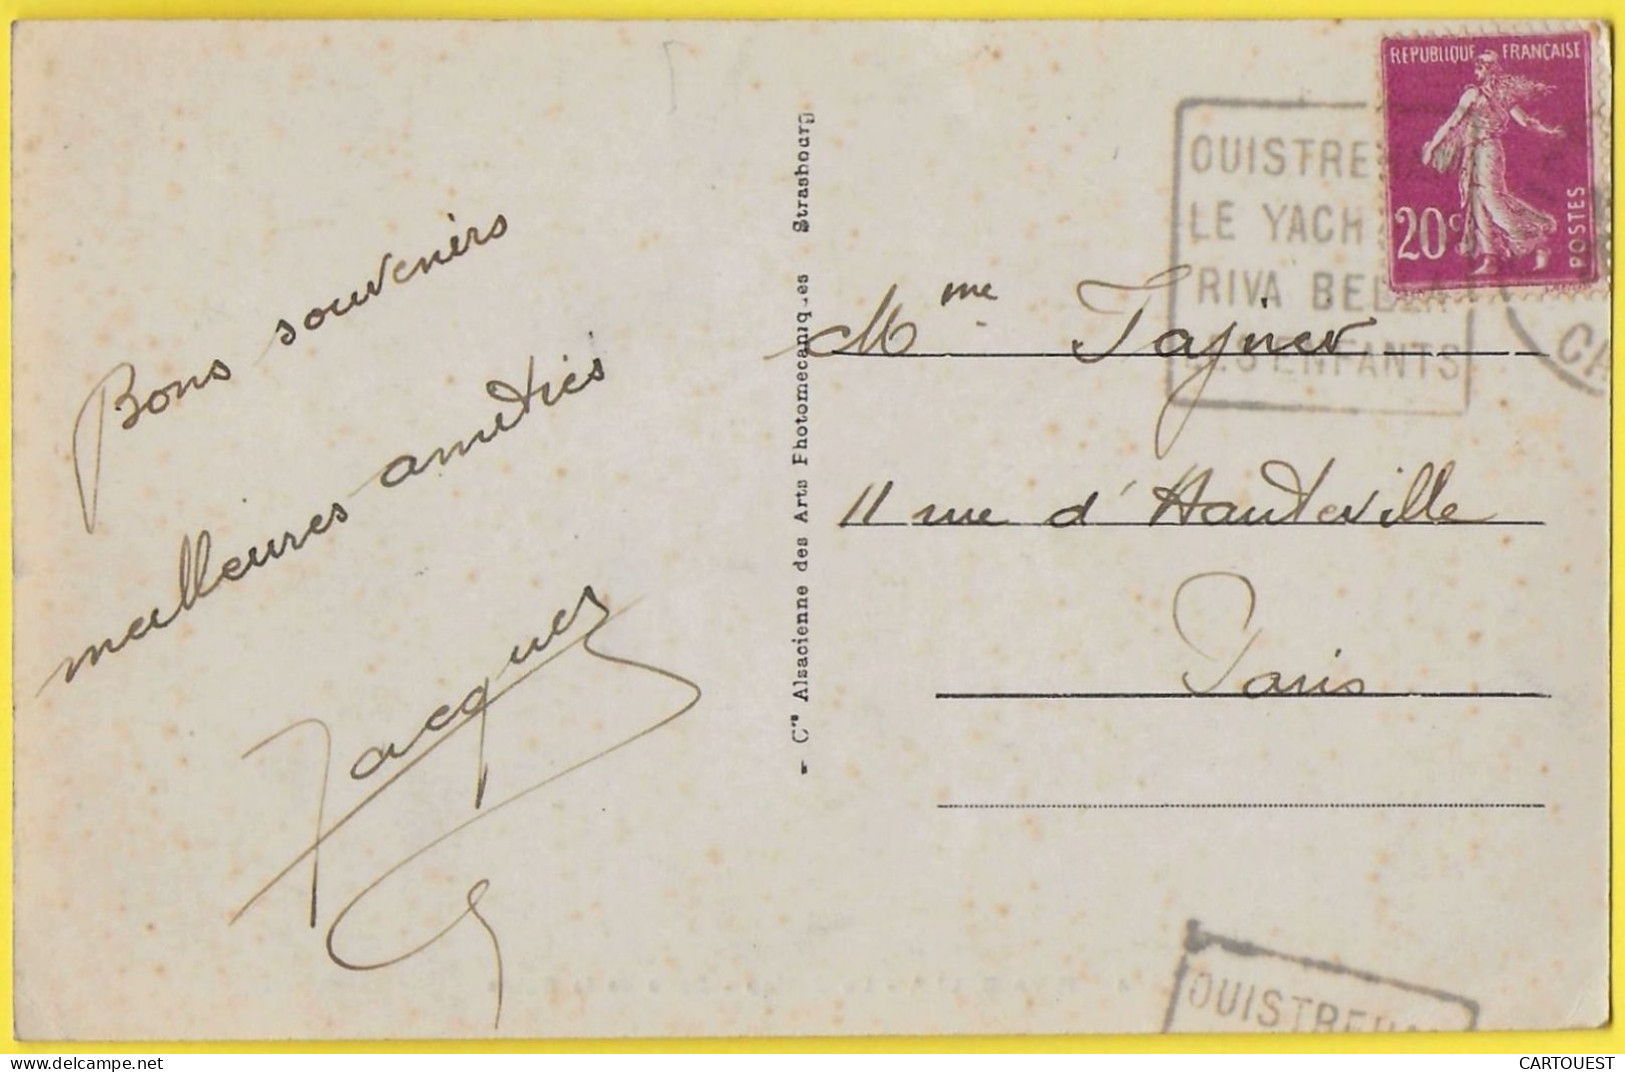 Bons souvenirs
meilleures amitiés
Jacques
Cie Alsacienne des Arts Photomecaniques Strasbourg
REPUBLIQUE FRANÇAISE
20c
POSTES
OUISTREHAM
LE YACH
RIVA BELLA
LES ENFANTS
CA
Mme
11 rue d'Hauteville
Paris
OUISTREHA
CARTOUEST